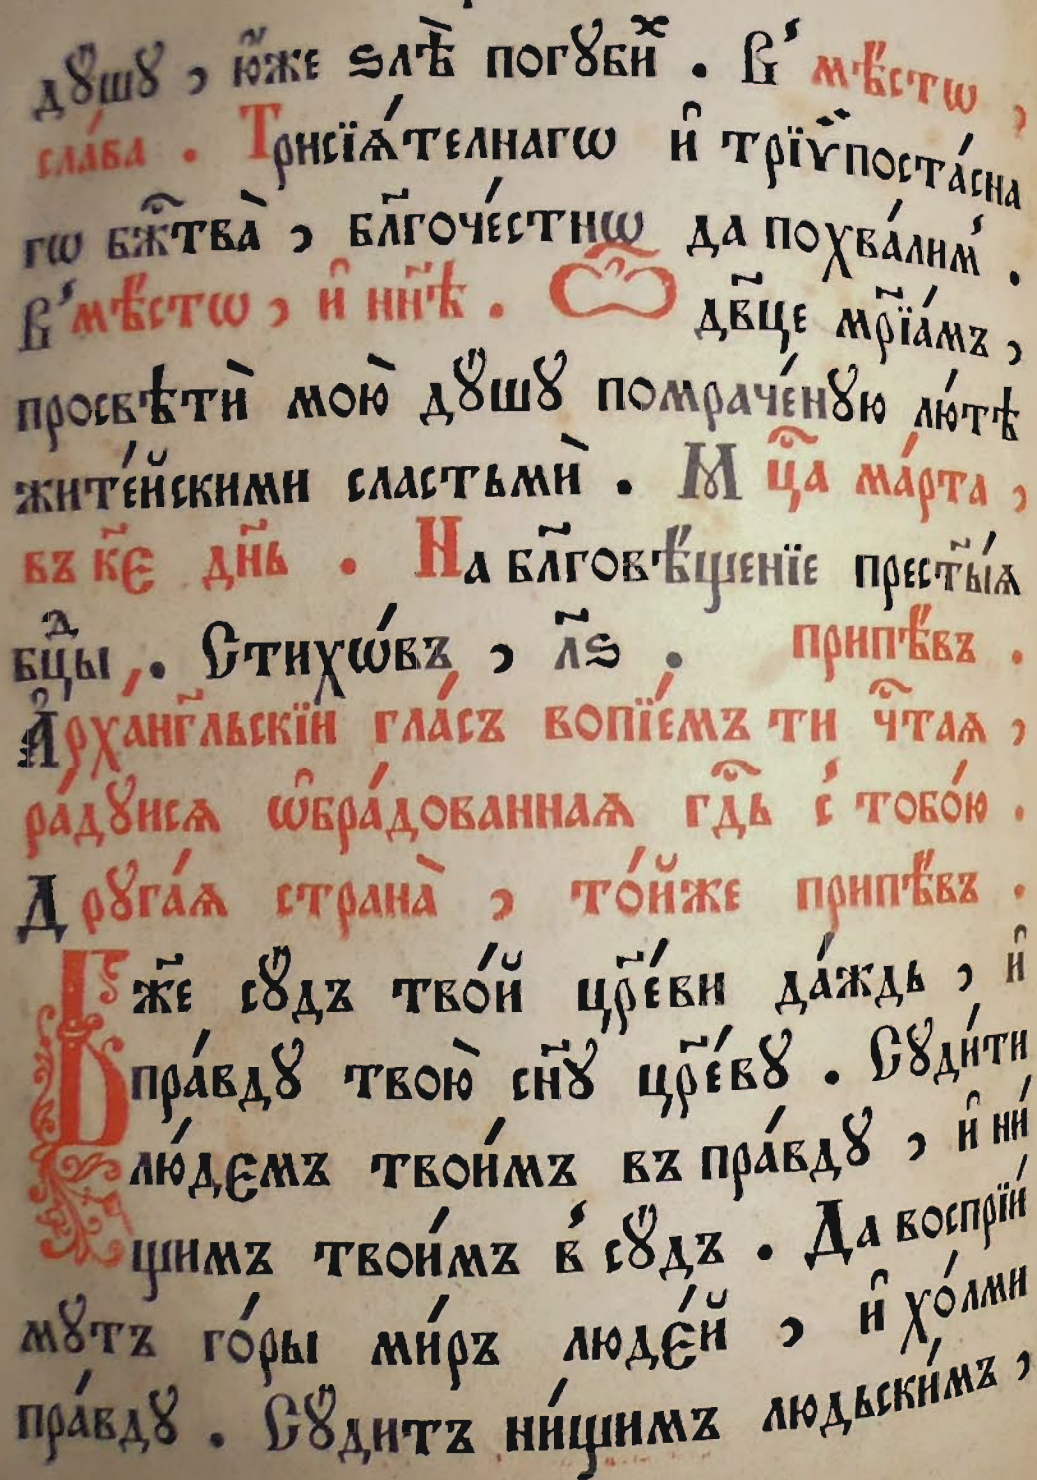 дꙋ́шꙋ , ю҆́же ѕлѣ̀ погꙋби́х . В' мѣ́стѡ ,
сла́ва . Трисїѧ́телнагѡ и҆ трїѵ̈поста́сна
гѡ бж҃тва̀ , бл҃гоче́стнѡ да похва́лим' .
В' мѣ́стѡ , и҆ нн҃ѣ . Ѽ дв҃це мр҃їа́мъ ,
просвѣтѝ мою̀ дꙋ́шꙋ помраче́нꙋю лю́тѣ
жите́йскими сластьмѝ . М ц҃а ма́рта ,
въ к҃є дн҃ь . На бл҃говѣ́щенїе прест҃ы́ѧ
бцⷣы . Стихѡ́въ , л҃ѕ . припѣ́въ .
А҆рха́нг҃льскїи гла́съ вопїе́мъ ти ч҃таѧ ,
ра́дꙋисѧ ѡ҆бра́дованнаѧ гд҃ь с' тобо́ю .
Дрꙋга́ѧ страна̀ , то́йже припѣ́въ .
Бж҃е сꙋ́дъ тво́й цр҃е́ви да́ждь , и҆
пра́вдꙋ твою̀ сн҃ꙋ цр҃е́вꙋ . Сꙋди́ти
лю́дємъ твои́мъ въ пра́вдꙋ , и҆ ни́
щимъ твои́мъ в' сꙋ́дъ . Да воспрїи́
мꙋтъ го́ры ми́ръ людє́й , и҆ хо́лми
пра́вдꙋ . Сꙋ́дитъ ни́щимъ людьски́мъ ,